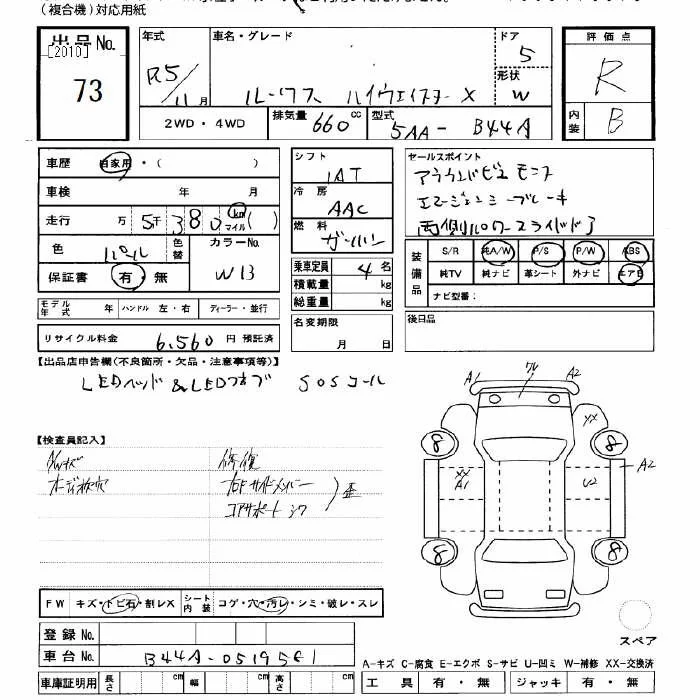 (複合機)対応用紙
出品No.
[2010]
73
年式
R5/11月
車名・グレード
ルークス ハイウェイスター X
ドア
5
形状
W
2WD・4WD
排気量 660 cc
型式 5AA-B44A
評価点
R
内装 B
車歴 自家用・( )
車検 年 月
走行 万 5千380 km マイル( )
色 パール
色替
カラーNo.
W13
保証書 有・無
モデル年式 年 ハンドル 左・右 ディーラー・並行
リサイクル料金 6,560 円 預託済
シフト
IAT
冷房
AAC
燃料
ガソリン
乗車定員 4 名
積載量 kg
総重量 kg
名変期限
月 日
セールスポイント
アラウンドビューモニター
エマージェンシーブレーキ
両側パワースライドドア
装備品
S/R 純A/W P/S P/W ABS
純TV 純ナビ 革シート 外ナビ エアB
ナビ型番:
後日品
【出品店申告欄(不良箇所・欠品・注意事項等)】
LEDヘッド & LEDフォグ SOSコール
【検査員記入】
A/Wキズ
修復
右Fサイドメンバー
コアサポート
歪
FW キズ・トビ石・割レX
シート内装 コゲ・穴・汚レ・シミ・破レ・スレ
登録No.
車台No. B44A-0519561
車庫証明用 長さ cm 幅 cm 高さ cm
A1
A2
XX
8
8
XX
A1
U2
A2
8
8
スペア
A-キズ C-腐食 E-エクボ S-サビ U-凹ミ W-補修 XX-交換済
工具 有・無 ジャッキ 有・無